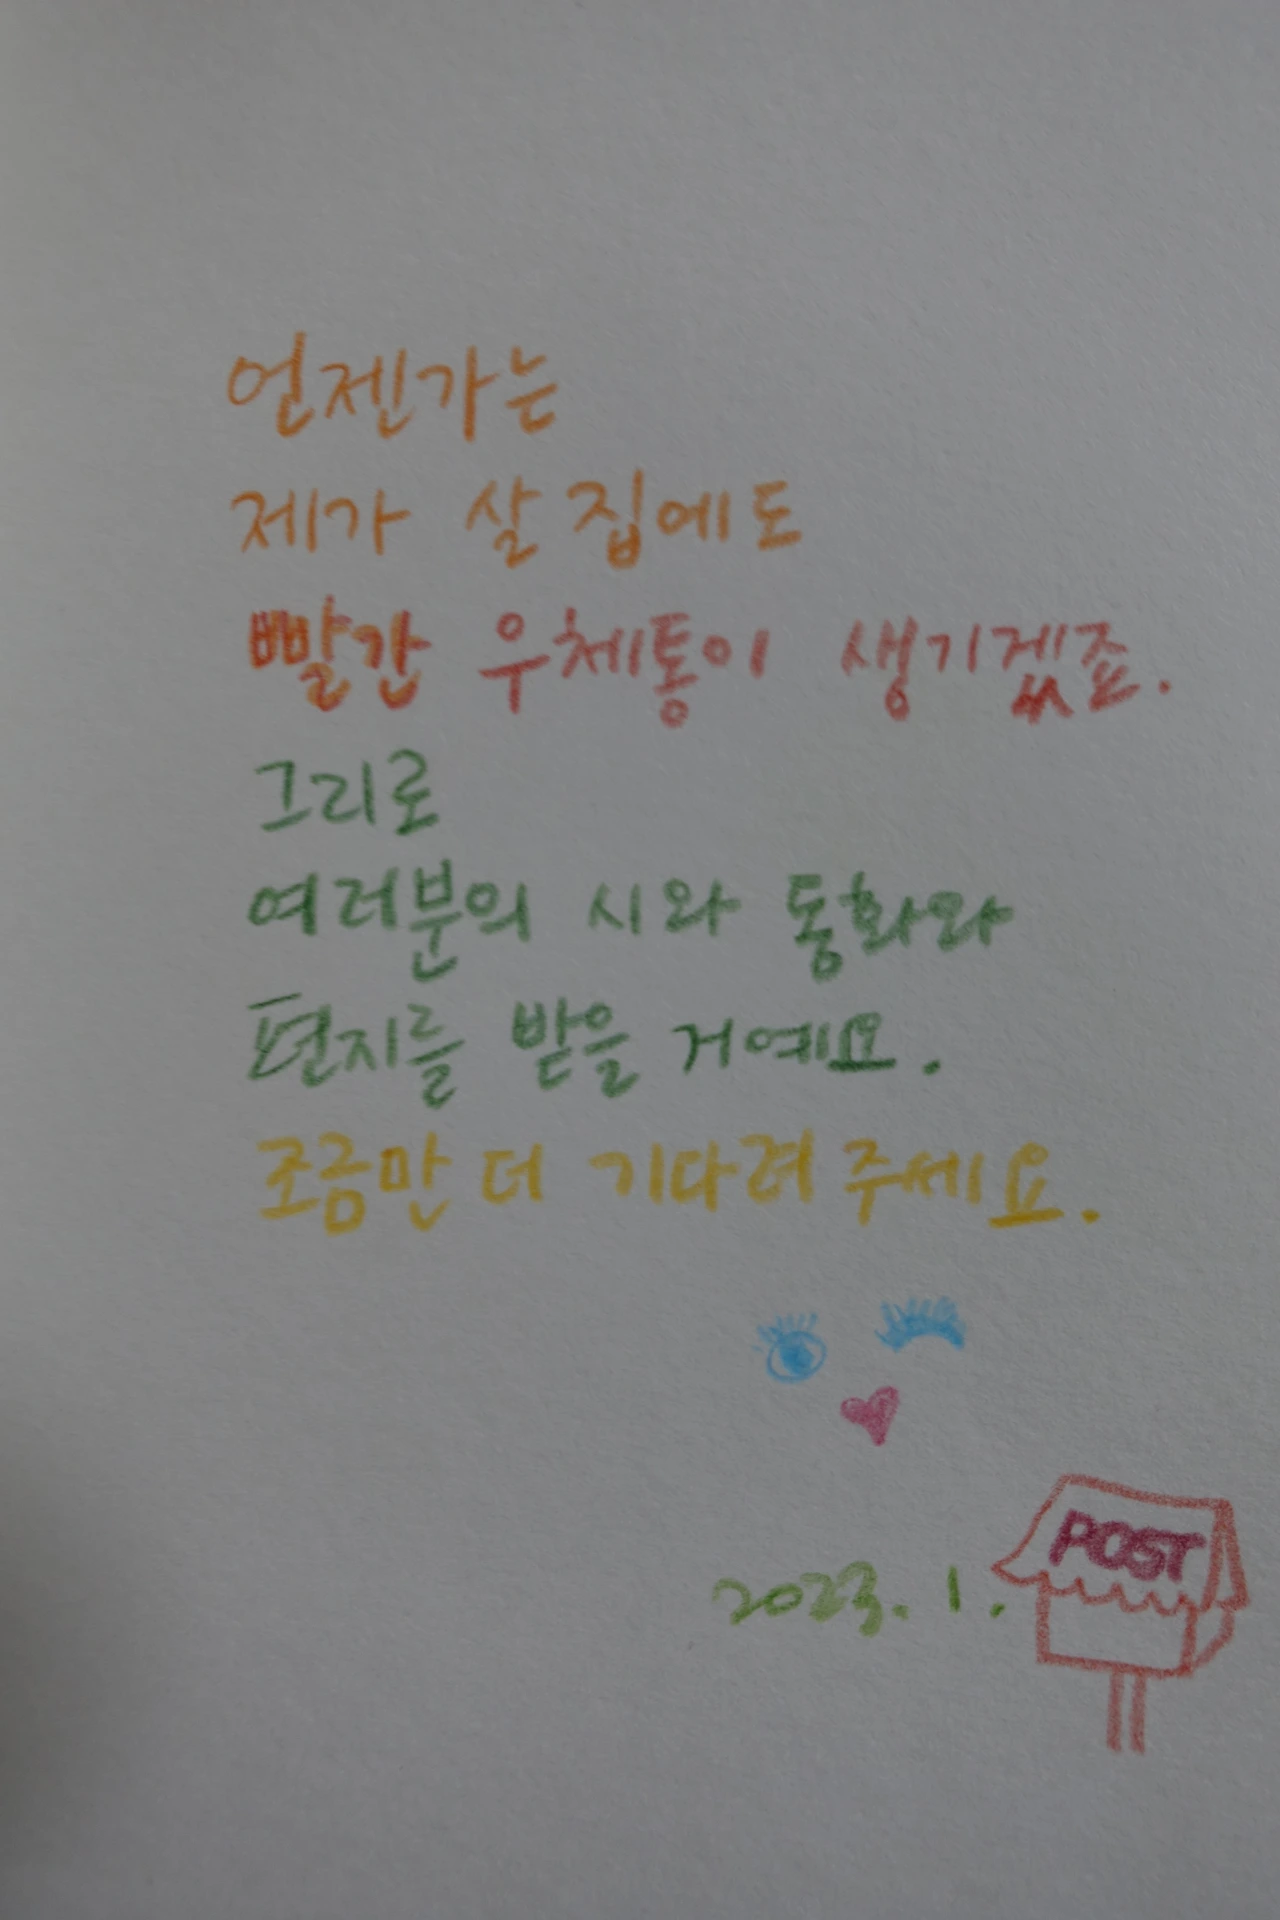 언젠가는
제가 살 집에도
빨간 우체통이 생기겠죠.
그리로
여러분의 시와 동화와
편지를 받을 거예요.
조금만 더 기다려 주세요.
POST
2023. 1.